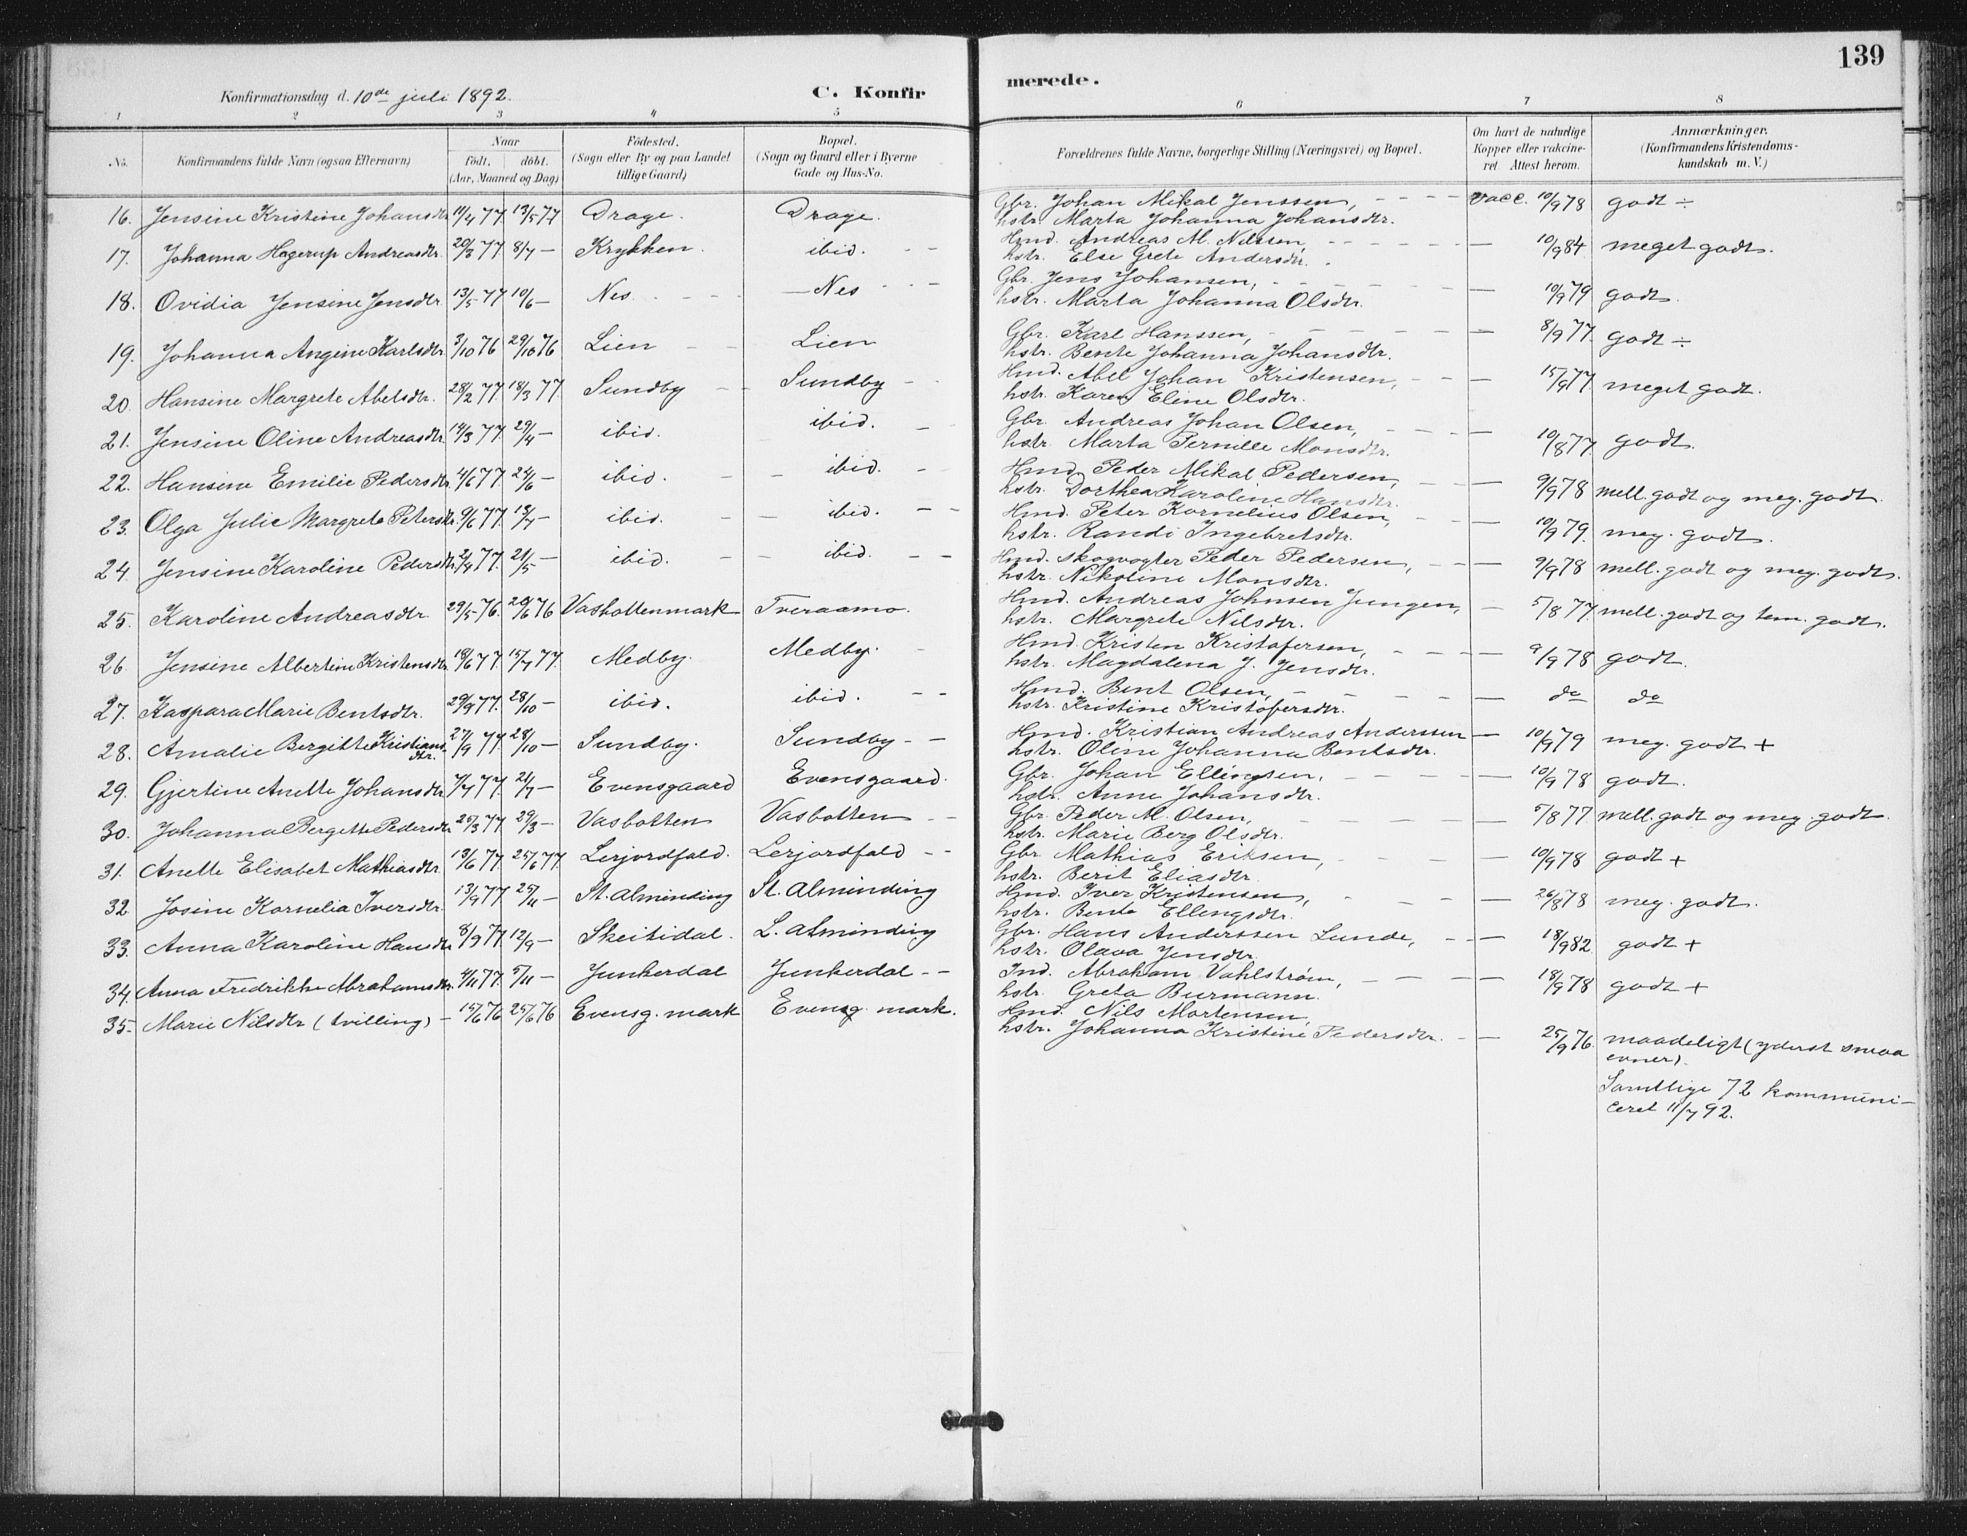 139
Konfirmationsdag d. 10de juli 1892. C. Konfirmerede.
1 2 3 4 5 6 7 8
No. Konfirmandens fulde Navn (ogsaa Efternavn) Naar födt. döbt. (Aar, Maaned og Dag) Födested. (Sogn eller By og paa Landet tillige Gaard) Bopæl. (Sogn og Gaard eller i Byerne Gade og Hus-No. Forældrenes fulde Navne, borgerlige Stilling (Næringsvei) og Bopæl. Om havt de naturlige Kopper eller vakcineret. Attest herom. Anmærkninger. (Konfirmandens Kristendomskundskab m. V.)
16. Jensine Kristine Johansdtr 11/4 77. 13/5 77 Drage. Drage. Gbr. Johan Mikal Jenssen, vacc. 10/9 78 godt ÷
hstr. Marta Johanna Johansdtr.
17. Johanna Hagerup Andreasdtr. 20/3 77. 8/4 — Krykken. ibid. Hmd. Andreas M. Nilssen, — 10/9 84 meget godt.
hstr. Else Grete Andersdtr.
18. Ovidia Jensine Jensdtr 13/5 77 10/6 — Nes — Nes Gbr. Jens Johansen, — 10/9 79 godt.
hstr. Marta Johanna Olsdtr.
19. Johanna Angine Karlsdtr. 3/10 76 29/10 76 Lien Lien Gbr. Karl Hanssen, — 8/9 77. godt ÷
hstr. Bente Johanna Johansdtr.
20. Hansine Margrete Abelsdtr. 28/2 77. 18/3 77. Sundby Sundby Hmd. Abel Johan Kristensen, — 15/9 77 meget godt.
hstr. Karen Eline Olsdtr.
21. Jensine Oline Andreasdtr 14/3 77. 29/4 — ibid. ibid. Gbr. Andreas Johan Olsen, — 10/8 77. godt.
hstr. Marta Pernille Monsdtr.
22. Hansine Emilie Pedersdtr. 4/6 77. 24/6 — ibid. ibid. Hmd. Peder Mikal Pedersen, — 9/9 78 mell. godt og meg. godt.
hstr. Dorthea Karoline Hansdtr.
23. Olga Julie Margrete Petersdtr. 9/6 77. 15/7 — ibid. ibid. Hmd. Peter Kornelius Olsen, — 10/9 79. meg. godt.
hstr. Randi Ingebretsdtr.
24. Jensine Karoline Pedersdtr. 2/4 77. 21/5 — ibid. ibid. Hmd. skogvogter Peder Pedersen, — 9/9 78 mell. godt og meg. godt.
hstr. Nikoline Monsdtr.
25. Karoline Andreasdtr. 29/5 76. 20/6 76 Vasbottenmark Tveraamo. Hmd. Andreas Johnsen Jungen, — 5/8 77. mell. godt og tem. godt.
hstr. Margrete Nilsdtr.
26. Jensine Albertine Kristensdtr 19/6 77. 15/7 77. Medby. Medby. Hmd. Kristen Kristofersen, — 9/9 78 godt.
hstr. Magdalena J. Jensdtr.
27. Kaspara Marie Bentsdtr. 29/9 77. 28/10 — ibid. ibid. Hmd. Bent Olsen, — do do
hstr. Kristine Kristofersdtr.
28. Amalie Bergitte Kristiansdtr. 27/9 77. 28/10 — Sundby. Sundby Hmd. Kristian Andreas Anderssen — 10/9 79 meg. godt +
hstr. Oline Johanna Bentsdtr.
29. Gjertine Anette Johansdtr 7/7 77. 21/7 — Evensgaard Evensgaard. Gbr. Johan Ellingsen, — 10/9 78 godt.
hstr. Anne Johansdtr.
30. Johanna Bergette Pedersdtr 25/3 77. 29/3 — Vasbotten Vasbotten Gbr. Peder M. Olsen, — 5/8 77 mell. godt og meg. godt.
hstr. Marie Berg Olsdtr.
31. Anette Elisabet Mathiasdtr. 13/6 77. 25/6 77. Lerjordfald. Lerjordfald Gbr. Mathias Eriksen, — 10/9 78 godt +
hstr. Berit Eliasdtr.
32. Josine Kornelia Iversdtr. 13/9 77. 25/11 — St. Alminding St. Alminding Hmd. Iver Kristensen, — 26/8 78 meg. godt.
hstr. Bente Ellingsdtr.
33. Anna Karoline Hansdtr 8/9 77. 12/9 — Skeitidal. L. Alminding Gbr. Hans Anderssen Lunde, — 18/9 82 godt +
hstr. Olava Jensdtr.
34. Anna Fredrikke Abrahamsdtr. 4/11 77. 5/11 — Junkerdal Junkerdal Ind. Abraham Vahlström, — 18/9 78 godt +
hstr. Greta Burmann.
35. Marie Nilsdtr (tvilling) — 15/6 76 25/6 76 Evensg. mark Evensg. mark. Hmd. Nils Mortensen,
hstr. Johanna Kristine Pedersdtr. — 25/9 76. maadeligt (yderst smaa
evner).
Samtlige 72 kommuni-
ceret 11/7 92.